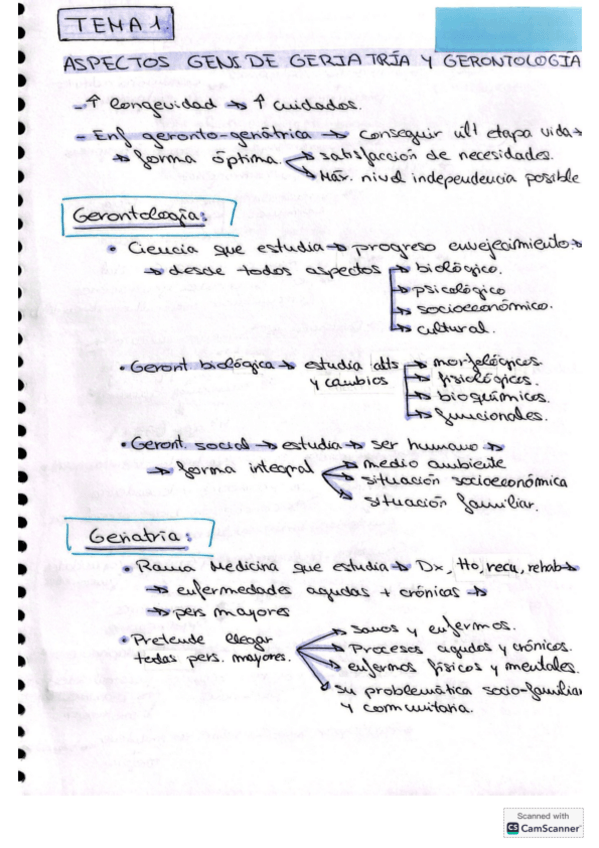 TEMA 1.
ASPECTOS GENS DE GERIATRÍA Y GERONTOLOGÍA
- ↑ longevidad → ↑ cuidados.
- Enf geronto-geriátrica → conseguir ult etapa vida →
→ forma óptima. → satisfacción de necesidades.
→ Máx. nivel independencia posible
Gerontología:
• Ciencia que estudia → progreso envejecimiento →
→ desde todos aspectos → biológico.
→ psicológico
→ socioeconómico.
→ cultural.
• Geront biológica → estudia alts → morfológicos.
y cambios → fisiológicos.
→ bioquímicos.
→ funcionales.
• Geront. social → estudia → ser humano →
→ forma integral → medio ambiente
→ situación socioeconómica
→ situación familiar.
Geriatría:
• Rama Medicina que estudia → Dx, tto, recu, rehab →
→ enfermedades agudas + crónicas →
→ pers mayores
• Pretende llegar → sanos y enfermos.
todas pers. mayores. → Procesos agudos y crónicos.
→ enfermos físicos y mentales.
→ su problemática socio-familiar
y comunitaria.
Scanned with
CS CamScanner